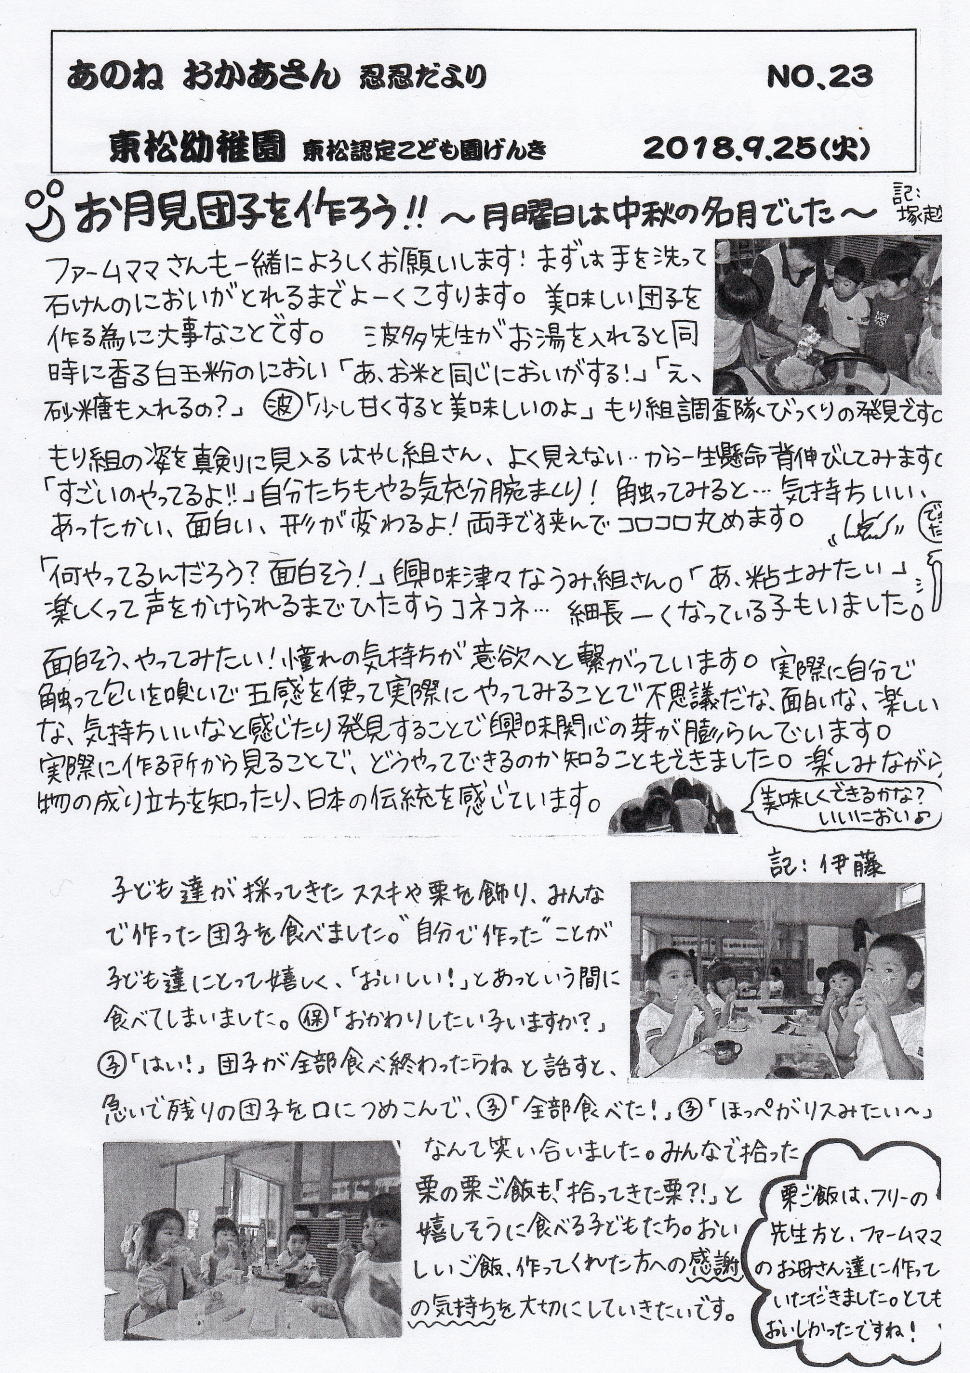 あのね おかあさん 忍忍だより NO.23
東松幼稚園 東松認定こども園げんき 2018.9.25(火)
お月見団子を作ろう!! ～月曜日は中秋の名月でした～
記:
塚越
ファームママさんも一緒によろしくお願いします! まずは手を洗って
石けんのにおいがとれるまでよーくこすります。 美味しい団子を
作る為に大事なことです。 波多先生がお湯を入れると同
時に香る白玉粉のにおい「あ、お米と同じにおいがする!」「え、
砂糖も入れるの?」 波「少し甘くすると美味しいのよ」もり組調査隊、びっくりの発見です。
もり組の姿を真剣に見入るはやし組さん、よく見えない‥から一生懸命背伸びしてみます。
「すごいのやってるよ!!」自分たちもやる気充分腕まくり! 触ってみると… 気持ちいい、
あったかい、面白い、形が変わるよ! 両手で挟んでコロコロ丸めます。
「何やってるんだろう? 面白そう!」興味津々なうみ組さん。「あ、粘土みたい」
楽しくって声をかけられるまでひたすらコネコネ… 細長ーくなっている子もいました。
面白そう、やってみたい! 憧れの気持ちが意欲へと繋がっています。 実際に自分で
触って匂いを嗅いで五感を使って実際にやってみることで不思議だな、面白いな、楽しい
な、気持ちいいなと感じたり発見することで興味関心の芽が膨らんでいます。
実際に作る所から見ることで、どうやってできるのか知ることもできました。楽しみながら
物の成り立ちを知ったり、日本の伝統を感じています。
美味しくできるかな?
いいにおい♪
記: 伊藤
子ども達が採ってきたススキや栗を飾り、みんな
で作った団子を食べました。"自分で作った"ことが
子ども達にとって嬉しく、「おいしい!」とあっという間に
食べてしまいました。保「おかわりしたい子いますか?」
子「はい!」団子が全部食べ終わったらねと話すと、
急いで残りの団子を口につめこんで、子「全部食べた!」子「ほっぺがリスみたい～」
なんて笑い合いました。みんなで拾った
栗の栗ご飯も、「拾ってきた栗?!」と
嬉しそうに食べる子どもたち。おい
しいご飯、作ってくれた方への感謝
の気持ちを大切にしていきたいです。
栗ご飯は、フリーの
先生方と、ファームママ
のお母さん達に作って
いただきました。とても
おいしかったですね!